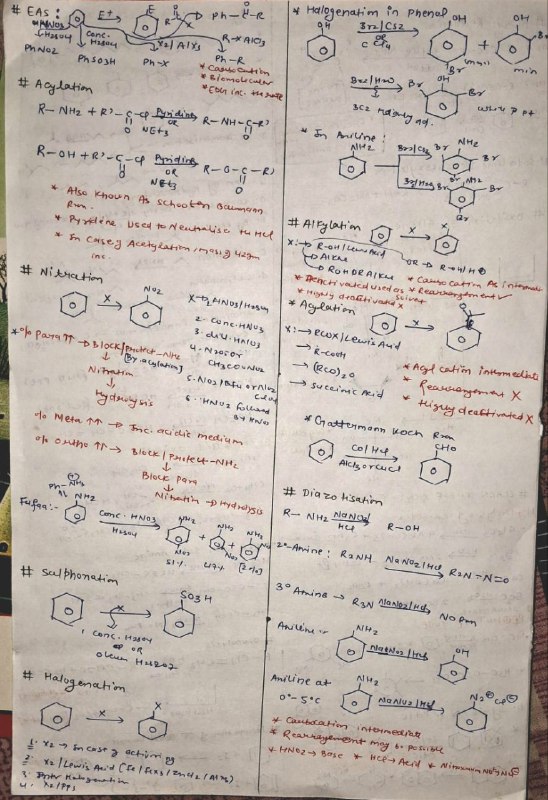 # EAS :
E+
E
Ph-C-R
O
HNO3
H2SO4
conc.
H2SO4
X2/AlX3
R-X/AlCl3
PhNO2
PhSO3H
Ph-X
Ph-R
* Carbocation
* Bimolecular
# Acylation
R-NH2 + R'-C-Cl Pyridine R-NH-C-R'
O OR O
NEt3
R-OH + R'-C-Cl Pyridine R-O-C-R'
O OR O
NEt3
* Also known As schooten Baumann
Rxn.
* Pyridine used to Neutralise the HCl
* In Case of Acetylation, mass of 42gm
inc.
# Nitration
NO2
X
X → 1. HNO3/H2SO4
2. Conc. HNO3
3. dil. HNO3
4. N2O5 or
CH3COONO2
* % para ↑↑ → Block/protect -NH2
[By acylation]
↓
Nitration
↓
Hydrolysis
% Meta ↑↑ → Inc. acidic medium
% ortho ↑↑ → Block/protect -NH2
↓
Block para
↓
Nitration → Hydrolysis
NH2
Conc. HNO3
H2SO4
NH2
NO2
51%
NH2
NO2
47%
NH2
NO2
[2%]
# Sulphonation
SO3H
X
1 conc. H2SO4
OR
Oleum H2S2O7
# Halogenation
X
X
1. X2 → In case of activ. gp
2. X2/Lewis Acid (Fe/FeX3/ZnCl2/AlX3)
3. Inter Halogenation
* Halogenation in phenol
OH
Br2/CS2
OR
CCl4
OH
Br
(major)
+
OH
Br
min
Br2/H2O
OH
Br
Br
Br
white ppt
* In Aniline :
NH2
Br2/CS2
NH2
Br
Br2/H2O
NH2
Br
Br
Br
# Alkylation
X
X: → R-OH/Lewis Acid
→ Alkene
→ ROH OR Alkene
OR → R-OH/H⊕
* Carbocation As intermed.
* Deactivated used as solvent
* Rearrangement ✓
* Highly deactivated X
* Acylation
X
X: → RCOX/Lewis Acid
→ R-COOH
→ (RCO)2O
→ Succinic Acid
* Acyl cation intermediate
* Rearrangement X
* Highly deactivated X
* Gattermann Koch Rxn
CO/HCl
AlCl3 or CuCl
CHO
# Diazotisation
R-NH2 NaNO2 R-OH
HCl
2° Amine : R2NH NaNO2/HCl R2N-N=O
3° Amine → R3N NaNO2/HCl NO Rxn
Aniline →
NH2
NaNO2/HCl
OH
Aniline at
0°-5°C
NH2
NaNO2/HCl
N2⊕ Cl⊖
* Carbocation intermediate
* Rearrangement may be possible
* HNO2 → Base * HCl → Acid * Nitrosonium